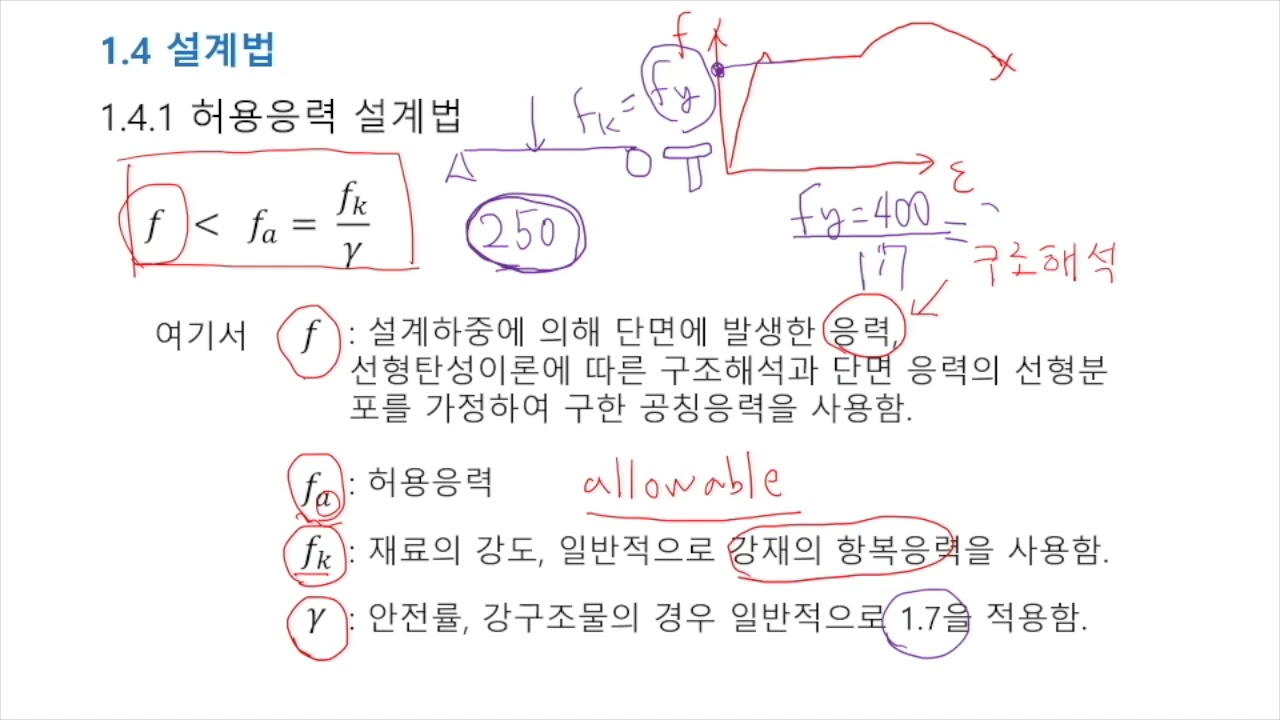 1.4 설계법
1.4.1 허용응력 설계법
f
fk = fy
ε
f < fa = fk / γ
250
fy=400 / 1.7 =
구조해석
여기서 f : 설계하중에 의해 단면에 발생한 응력,
선형탄성이론에 따른 구조해석과 단면 응력의 선형분
포를 가정하여 구한 공칭응력을 사용함.
fa : 허용응력 allowable
fk : 재료의 강도, 일반적으로 강재의 항복응력을 사용함.
γ : 안전률, 강구조물의 경우 일반적으로 1.7을 적용함.